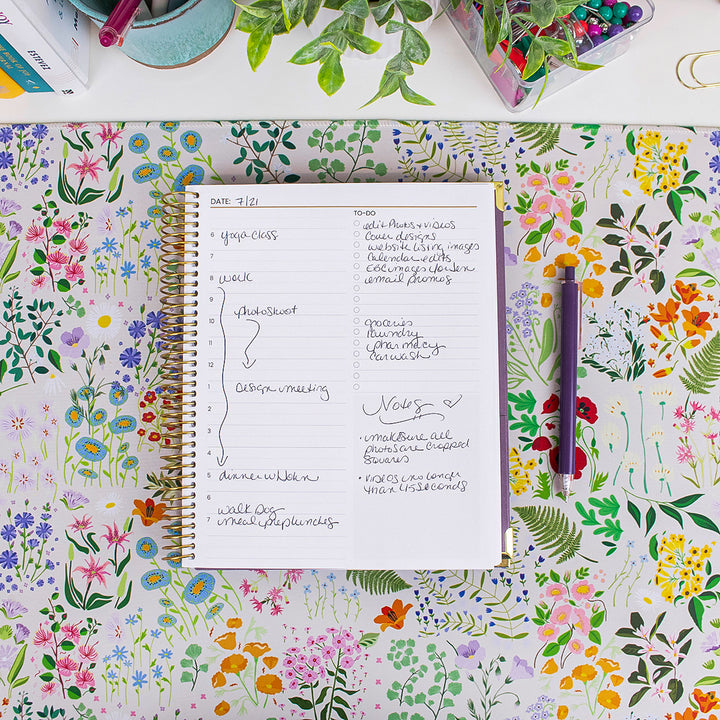 DATE: 7/21
6 yoga class
7
8 work
9
10 photoshoot
11
12
1 Design meeting
2
3
4
5 dinner w/ John
6
walk Dog
7 meal prep lunches
TO-DO
edit Photos & videos
Cover designs
website listing images
Calendar edits
images
email promos
groceries
laundry
pharmacy
car wash
Notes
• make sure all
photos are cropped
squares
• videos no longer
than 45 seconds
ESTEVEZ